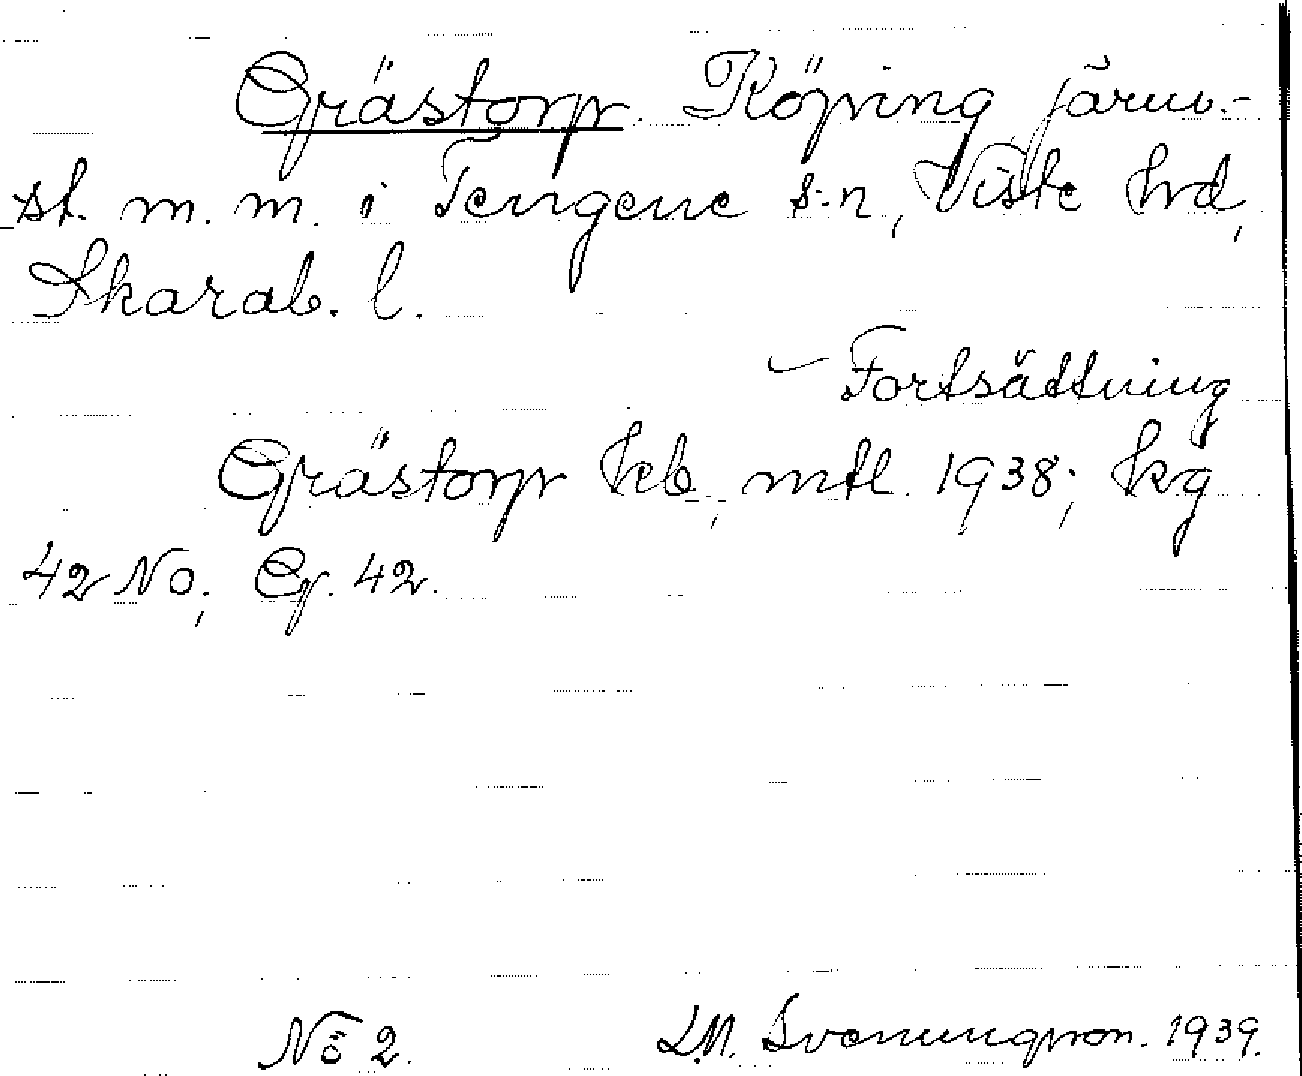 Grästorp. Köping järnv.-
st. m. m. i Tengene s:n, Viste hrd,
Skarab. l.
– Fortsättning
Grästorp kb, mtl. 1938; kg
42 NO; Eg. 42.
No 2. L.M. Svenungsson. 1939.